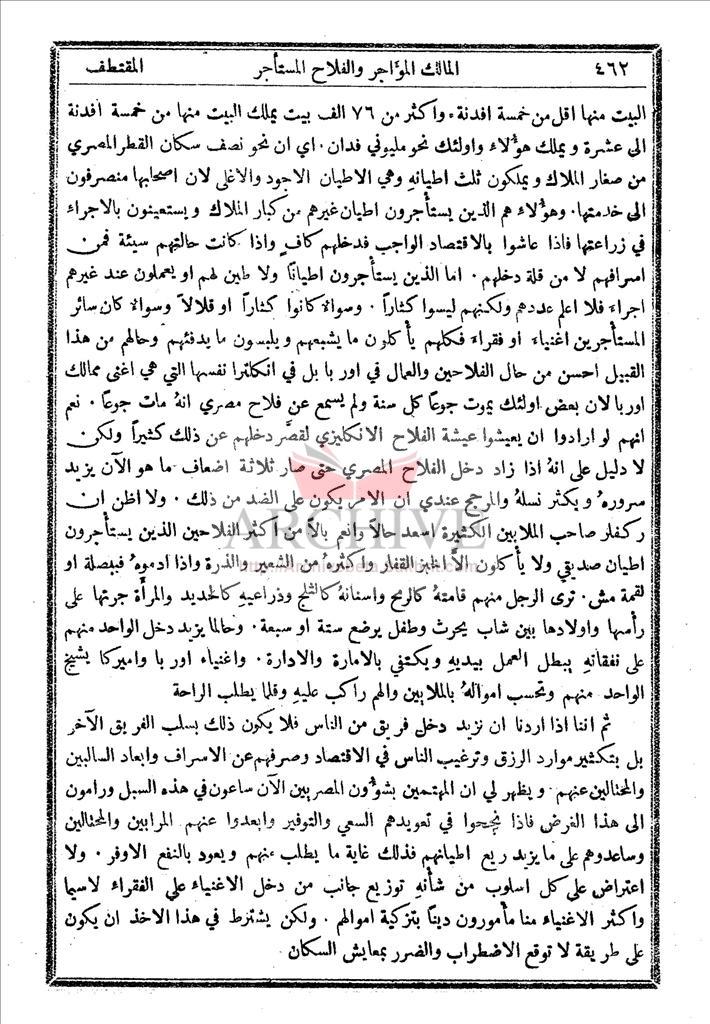 ٤٦٢ المالك المؤاجر والفلاح المستأجر المقتطف
البيت منها اقل من خمسة افدنة، واكثر من ٧٦ الف بيت يملك البيت منها من خمسة افدنة
الى عشرة ويملك هؤلاء واولئك نحو مليوني فدان. اي ان نحو نصف سكان القطر المصري
من صغار الملاك ويملكون ثلث اطيانهِ وهي الاطيان الاجود والاغلى لان اصحابها منصرفون
الى خدمتها. وهؤلاء هم الذين يستأجرون اطيان غيرهم من كبار الملاك ويستعينون بالاجراء
في زراعتها فاذا عاشوا بالاقتصاد الواجب فدخلهم كافٍ واذا كانت حالتهم سيئة فمن
اسرافهم لا من قلة دخلهم. اما الذين يستأجرون اطيانًا ولا طين لهم او يعملون عند غيرهم
اجراء فلا اعلم عددهم ولكنهم ليسوا كثارًا. وسواء كانوا كثارًا او قلالاً وسواء كان سائر
المستأجرين اغنياء او فقراء فكلهم يأكلون ما يشبعهم ويلبسون ما يدفئهم وحالهم من هذا
القبيل احسن من حال الفلاحين والعمال في اوربا بل في انكلترا نفسها التي هي اغنى ممالك
اوربا لان بعض اولئك يموت جوعًا كل سنة ولم يسمع عن فلاح مصري انهُ مات جوعًا. نعم
انهم لو ارادوا ان يعيشوا عيشة الفلاح الانكليزي لقصَّر دخلهم عن ذلك كثيرًا ولكن
لا دليل على انهُ اذا زاد دخل الفلاح المصري حتى صار ثلاثة اضعاف ما هو الآن يزيد
سرورهُ ويكثر نسلهُ والمرجح عندي ان الامر يكون على الضد من ذلك. ولا اظن ان
ركفلر صاحب الملايين الكثيرة اسعد حالاً وانعم بالاً من اكثر الفلاحين الذين يستأجرون
اطيان صديقي ولا يأكلون الاَّ الخبز القفار واكثرهُ من الشعير والذرة واذا ادموهُ فببصلة او
لقمة مش. ترى الرجل منهم قامتهُ كالرمح واسنانهُ كالثلج وذراعيهِ كالحديد والمرأة جرتها على
رأسها واولادها بين شاب يحرث وطفل يرضع ستة او سبعة. وحالما يزيد دخل الواحد منهم
على نفقاتهِ يبطل العمل بيديهِ ويكتفي بالامارة والادارة. واغنياء اوربا واميركا يشيخ
الواحد منهم وتحسب اموالهُ بالملايين والهم راكب عليهِ وقلما يطلب الراحة
ثم اننا اذا اردنا ان نزيد دخل فريق من الناس فلا يكون ذلك بسلب الفريق الآخر
بل بتكثير موارد الرزق وترغيب الناس في الاقتصاد وصرفهم عن الاسراف وابعاد السالبين
والمحتالين عنهم. ويظهر لي ان المهتمين بشؤون المصريين الآن ساعون في هذه السبل ورامون
الى هذا الغرض فاذا نجحوا في تعويدهم السعي والتوفير وابعدوا عنهم المرابين والمحتالين
وساعدوهم على ما يزيد ريع اطيانهم فذلك غاية ما يطلب منهم ويعود بالنفع الاوفر. ولا
اعتراض على كل اسلوب من شأنهِ توزيع جانب من دخل الاغنياء على الفقراء لاسيما
واكثر الاغنياء منا مأمورون دينًا بتزكية اموالهم. ولكن يشترط في هذا الاخذ ان يكون
على طريقة لا توقع الاضطراب والضرر بمعايش السكان
ARCHIVE